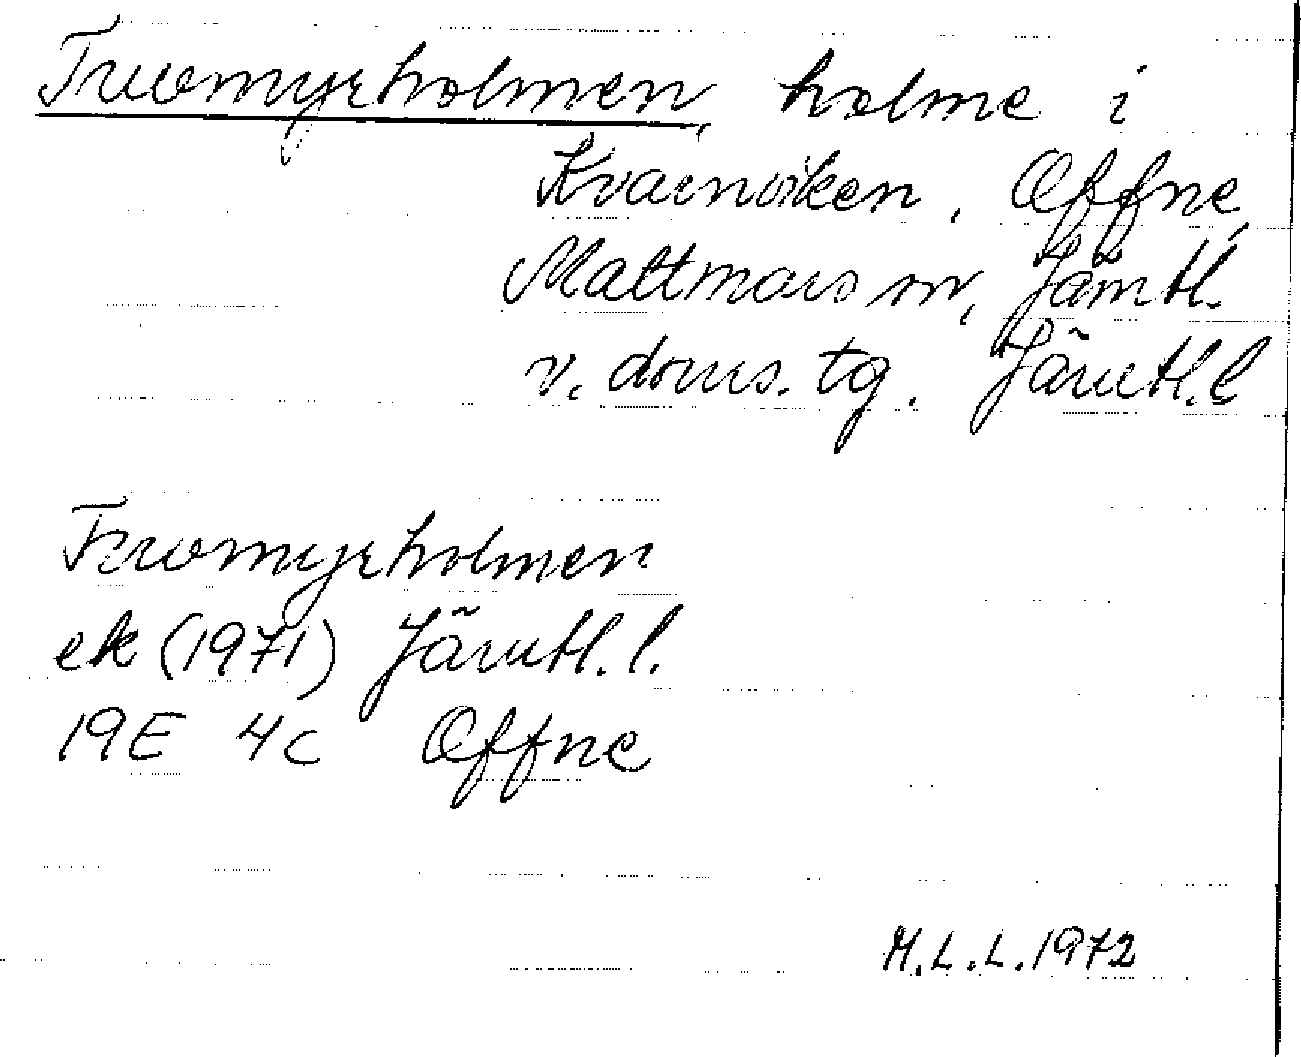 Truomyrholmen, holme i
Kvarnviken, Offne,
Mattmars sn, Jämtl.
v. doms. tg. Jämtl. l
Truomyrholmen
ek (1971) Jämtl. l.
19E 4c Offne
M.L.L. 1972